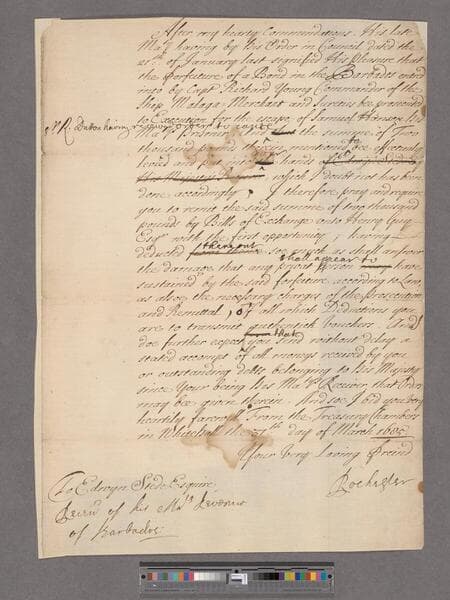 After my hearty Commendations. His late
Ma:ty having by His Order in Council dated the
of January last signified His Pleasure that
the forfeiture of a Bond in the Barbados entred
into by Capt. Richard Young Commander of the
Ship Malaga Merchant and Suretys be proceeded
to Execution for the escape of Samuel
Mr Dutton having order to cause
the summe of Two
thousand pound therein mentioned to bee effectually
levied and put into hands
His Majesty's which I doubt not has been
done accordingly, I therefore pray and require
you to remit the said summe of two thousand
pounds by Bills of Exchange unto Henry Guy
Esqr with the first opportunity, having
deducted thereout soe much as shall answer
shall appear to
the damage that any privat person have
sustained by the said forfeiture according to Law
as also the necessary charges of the Prosecution
and Remittal, of all which Deductions you
are to transmit authentick Vouchers. And I
doe further expect you send without delay a
stated accompt of all moneys received by you
or outstanding debts belonging to His Majesty
since Your being His Ma:ts Receiver that Order
may be given therein. And soe I bid you very
heartily farewell. From the Treasury Chambers
in Whitehall the th day of March 1685
Your very Loving Freind
Rochester
To Edwyn Stede Esquire
Receivr of his Mats Revenue
of Barbados